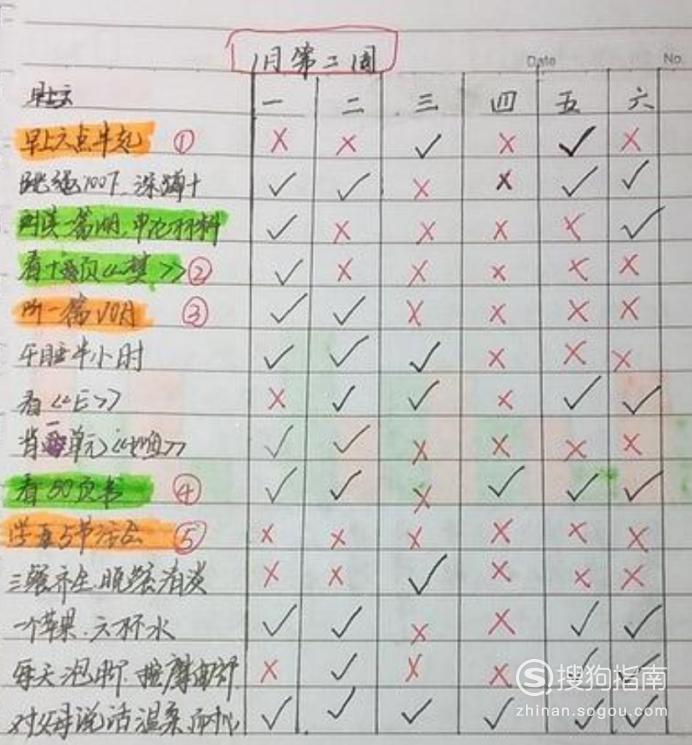 1月第二周
Date
No.
一 二 三 四 五 六
早上六点半起 ①
✗ ✗ ✓ ✗ ✓ ✗
跳绳100下
✓ ✓ ✗ ✗ ✓ ✓
一篇
✓ ✗ ✗ ✗ ✗ ✓
看十页《梦》 ②
✓ ✗ ✗ ✗ ✗ ✗
听一篇VOA ③
✓ ✓ ✗ ✗ ✗ ✗
午睡半小时
✓ ✓ ✓ ✗ ✗ ✗
看《E》
✗ ✓ ✓ ✗ ✓ ✓
背一单元
✓ ✓ ✗ ✗ ✗ ✗
看50页书 ④
✓ ✓ ✗ ✓ ✓ ✓
学 5节 ⑤
✗ ✗ ✗ ✗ ✗ ✗
三餐养生.晚餐清淡
✗ ✗ ✓ ✗ ✗ ✗
一个苹果.六杯水
✓ ✓ ✗ ✗ ✓ ✓
每天泡脚.按摩
✗ ✓ ✗ ✗ ✓ ✓
对父母说话温柔
✓ ✓ ✓ ✓ ✓ ✓
搜狗指南
zhinan.sogou.com